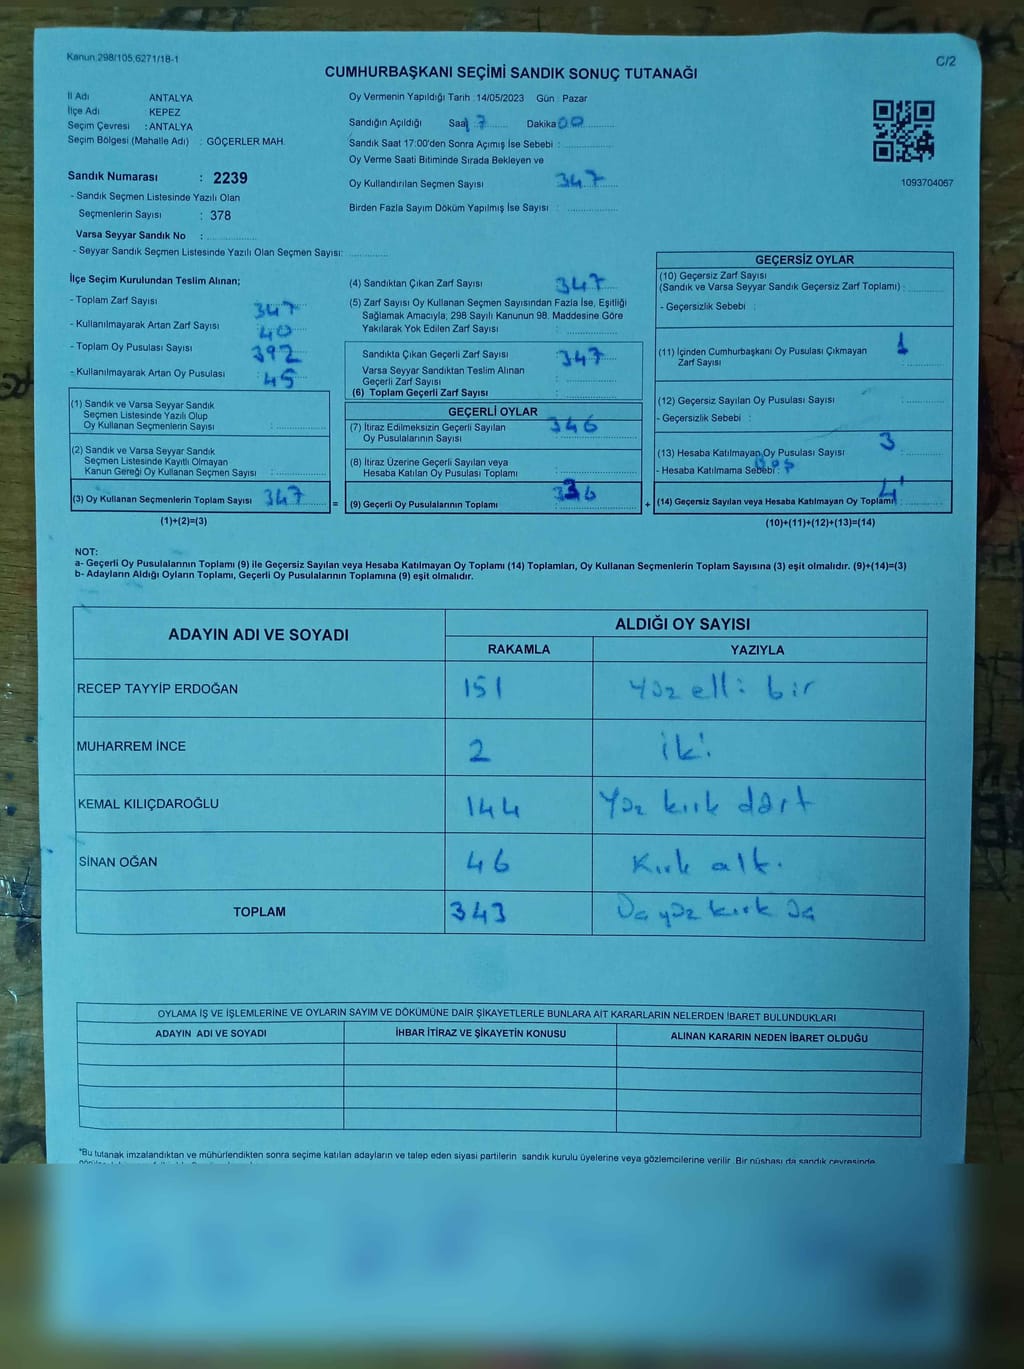 Kanun 298/105,6271/18-1
C/2
CUMHURBAŞKANI SEÇİMİ SANDIK SONUÇ TUTANAĞI
İl Adı ANTALYA
İlçe Adı KEPEZ
Seçim Çevresi : ANTALYA
Seçim Bölgesi (Mahalle Adı) : GÖÇERLER MAH.
Sandık Numarası : 2239
- Sandık Seçmen Listesinde Yazılı Olan
Seçmenlerin Sayısı : 378
Varsa Seyyar Sandık No :
- Seyyar Sandık Seçmen Listesinde Yazılı Olan Seçmen Sayısı:
Oy Vermenin Yapıldığı Tarih : 14/05/2023 Gün : Pazar
Sandığın Açıldığı Saat 17 Dakika 00
Sandık Saat 17:00'den Sonra Açımış İse Sebebi :
Oy Verme Saati Bitiminde Sırada Bekleyen ve
Oy Kullandırılan Seçmen Sayısı 347
Birden Fazla Sayım Döküm Yapılmış İse Sayısı :
1093704067
İlçe Seçim Kurulundan Teslim Alınan;
- Toplam Zarf Sayısı 347
- Kullanılmayarak Artan Zarf Sayısı 40
- Toplam Oy Pusulası Sayısı 392
- Kullanılmayarak Artan Oy Pusulası : 45
(1) Sandık ve Varsa Seyyar Sandık
Seçmen Listesinde Yazılı Olup
Oy Kullanan Seçmenlerin Sayısı :
(2) Sandık ve Varsa Seyyar Sandık
Seçmen Listesinde Kayıtlı Olmayan
Kanun Gereği Oy Kullanan Seçmen Sayısı :
(3) Oy Kullanan Seçmenlerin Toplam Sayısı 347 =
(1)+(2)=(3)
(4) Sandıktan Çıkan Zarf Sayısı 347
(5) Zarf Sayısı Oy Kullanan Seçmen Sayısından Fazla İse, Eşitliği
Sağlamak Amacıyla; 298 Sayılı Kanunun 98. Maddesine Göre
Yakılarak Yok Edilen Zarf Sayısı :
Sandıkta Çıkan Geçerli Zarf Sayısı 347
Varsa Seyyar Sandıktan Teslim Alınan
Geçerli Zarf Sayısı :
(6) Toplam Geçerli Zarf Sayısı :
GEÇERLİ OYLAR
(7) İtiraz Edilmeksizin Geçerli Sayılan 346
Oy Pusulalarının Sayısı
(8) İtiraz Üzerine Geçerli Sayılan veya
Hesaba Katılan Oy Pusulası Toplamı :
(9) Geçerli Oy Pusulalarının Toplamı +
GEÇERSİZ OYLAR
(10) Geçersiz Zarf Sayısı
(Sandık ve Varsa Seyyar Sandık Geçersiz Zarf Toplamı) :
- Geçersizlik Sebebi :
(11) İçinden Cumhurbaşkanı Oy Pusulası Çıkmayan 1
Zarf Sayısı :
(12) Geçersiz Sayılan Oy Pusulası Sayısı :
- Geçersizlik Sebebi :
(13) Hesaba Katılmayan Oy Pusulası Sayısı : 3
- Hesaba Katılmama Sebebi : Boş
(14) Geçersiz Sayılan veya Hesaba Katılmayan Oy Toplamı 4
(10)+(11)+(12)+(13)=(14)
NOT:
a- Geçerli Oy Pusulalarının Toplamı (9) ile Geçersiz Sayılan veya Hesaba Katılmayan Oy Toplamı (14) Toplamları, Oy Kullanan Seçmenlerin Toplam Sayısına (3) eşit olmalıdır. (9)+(14)=(3)
b- Adayların Aldığı Oyların Toplamı, Geçerli Oy Pusulalarının Toplamına (9) eşit olmalıdır.
ADAYIN ADI VE SOYADI ALDIĞI OY SAYISI
RAKAMLA YAZIYLA
RECEP TAYYİP ERDOĞAN 151 Yüz elli bir
MUHARREM İNCE 2 iki
KEMAL KILIÇDAROĞLU 144 Yüz kırk dört
SİNAN OĞAN 46 Kırk altı
TOPLAM 343 Üç yüz kırk üç
OYLAMA İŞ VE İŞLEMLERİNE VE OYLARIN SAYIM VE DÖKÜMÜNE DAİR ŞİKAYETLERLE BUNLARA AİT KARARLARIN NELERDEN İBARET BULUNDUKLARI
ADAYIN ADI VE SOYADI İHBAR İTİRAZ VE ŞİKAYETİN KONUSU ALINAN KARARIN NEDEN İBARET OLDUĞU
"Bu tutanak imzalandıktan ve mühürlendikten sonra seçime katılan adayların ve talep eden siyasi partilerin sandık kurulu üyelerine veya gözlemcilerine verilir. Bir nüshası da sandık çevresinde